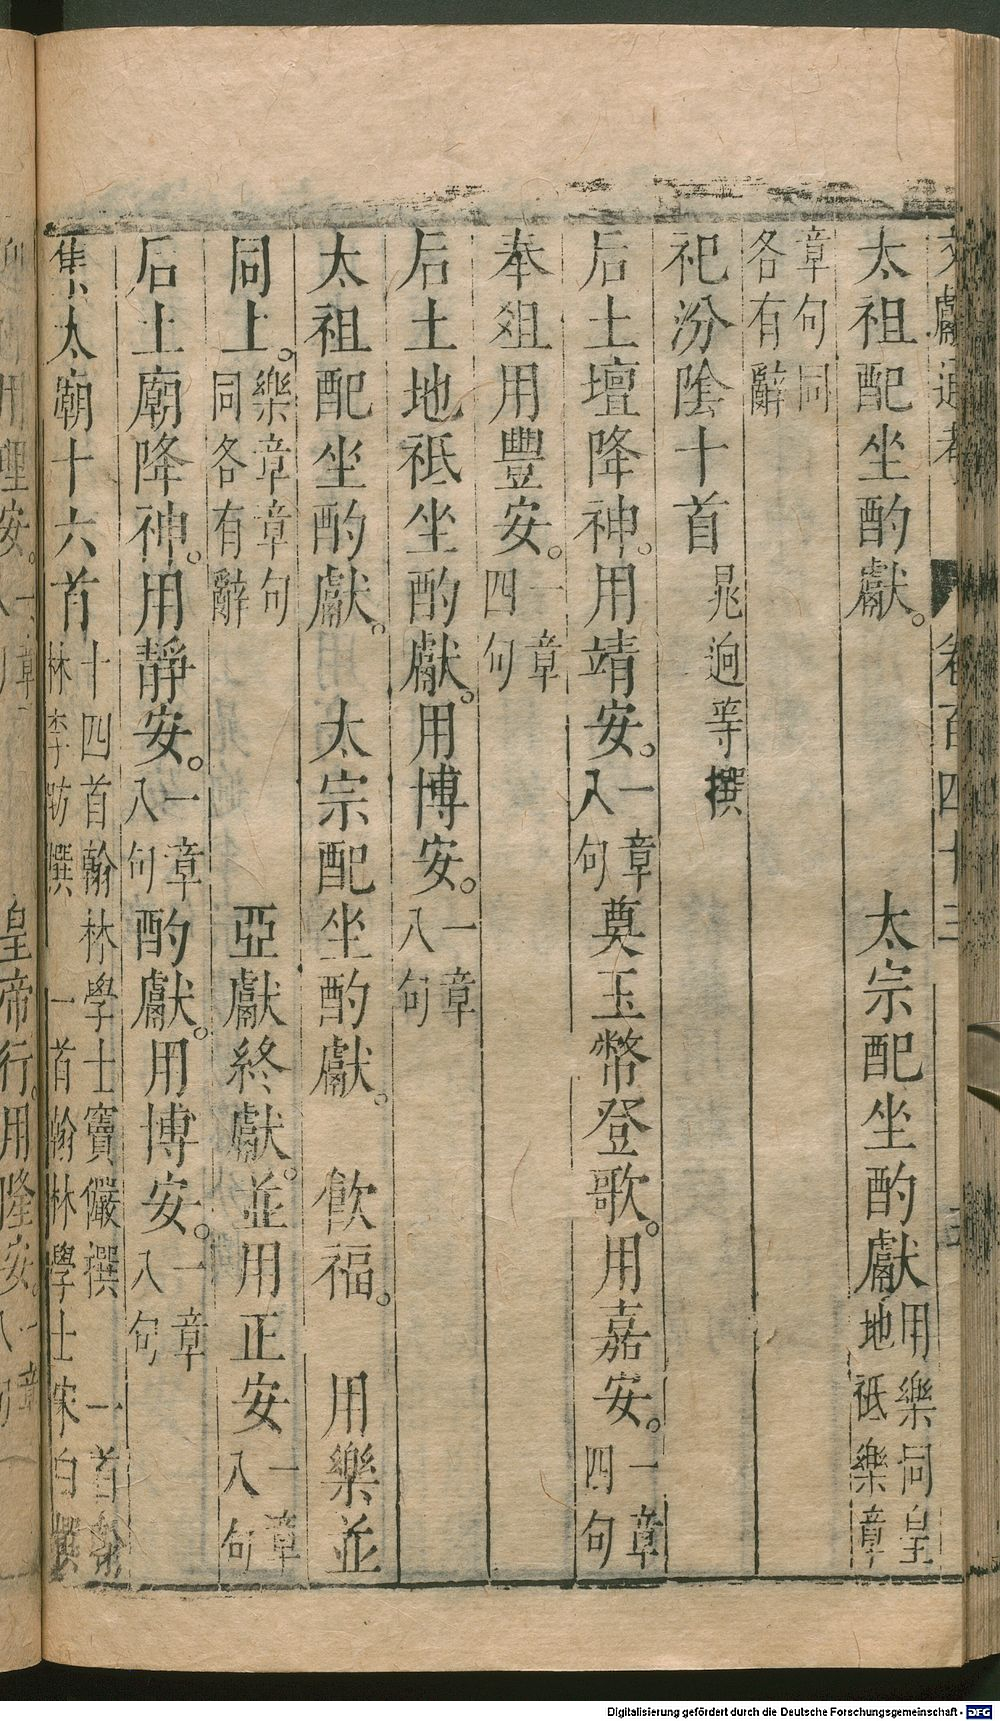 文獻通考 卷百四十三
太祖配坐酌獻。 太宗配坐酌獻 用樂同皇地祇樂章
章句同各有辭
祀汾陰十首 晁迥等撰
后土壇降神。用靖安。一章八句 奠玉幣登歌。用嘉安。一章四句
奉俎用豐安。一章四句
后土地祇坐酌獻。用博安。一章八句
太祖配坐酌獻。 太宗配坐酌獻。 飲福。 用樂並
同上。樂章章句同各有辭 亞獻終獻。並用正安 一章八句
后土廟降神。用靜安。一章八句 酌獻。用博安。一章八句
集太廟十六首 十四首翰林學士竇儼撰 一首翰林李昉撰 一首翰林學士宋白撰
皇帝行。用隆安。
Digitalisierung gefördert durch die Deutsche Forschungsgemeinschaft - DFG